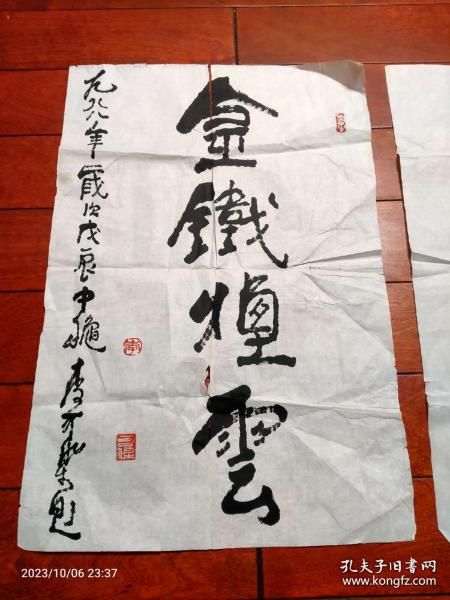 金鐵煙雲
九九八年歲次戊辰中秋 李 題
2023/10/06 23:37
孔夫子旧书网
www.kongfz.com